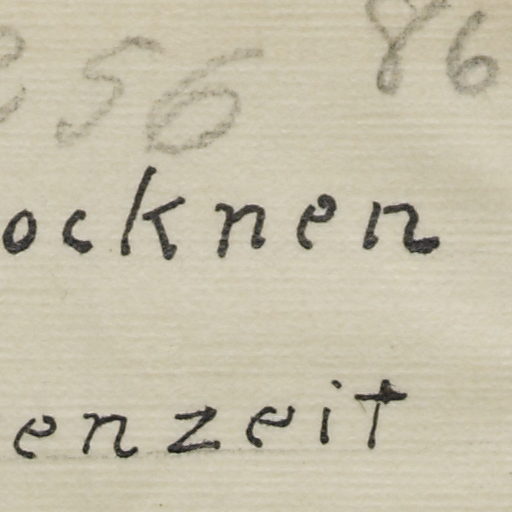 256 86
ocknen
enzeit